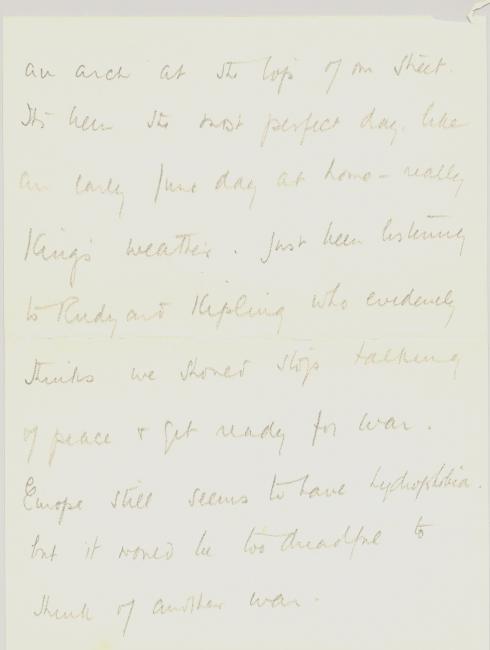 an arch at the top of our street.
It's been the most perfect day, like
an early June day at home - really
King's weather. Just been listening
to Rudyard Kipling who evidently
thinks we should stop talking
of peace & get ready for war.
Europe still seems to have hydrophobia.
but it would be too dreadful to
think of another war.